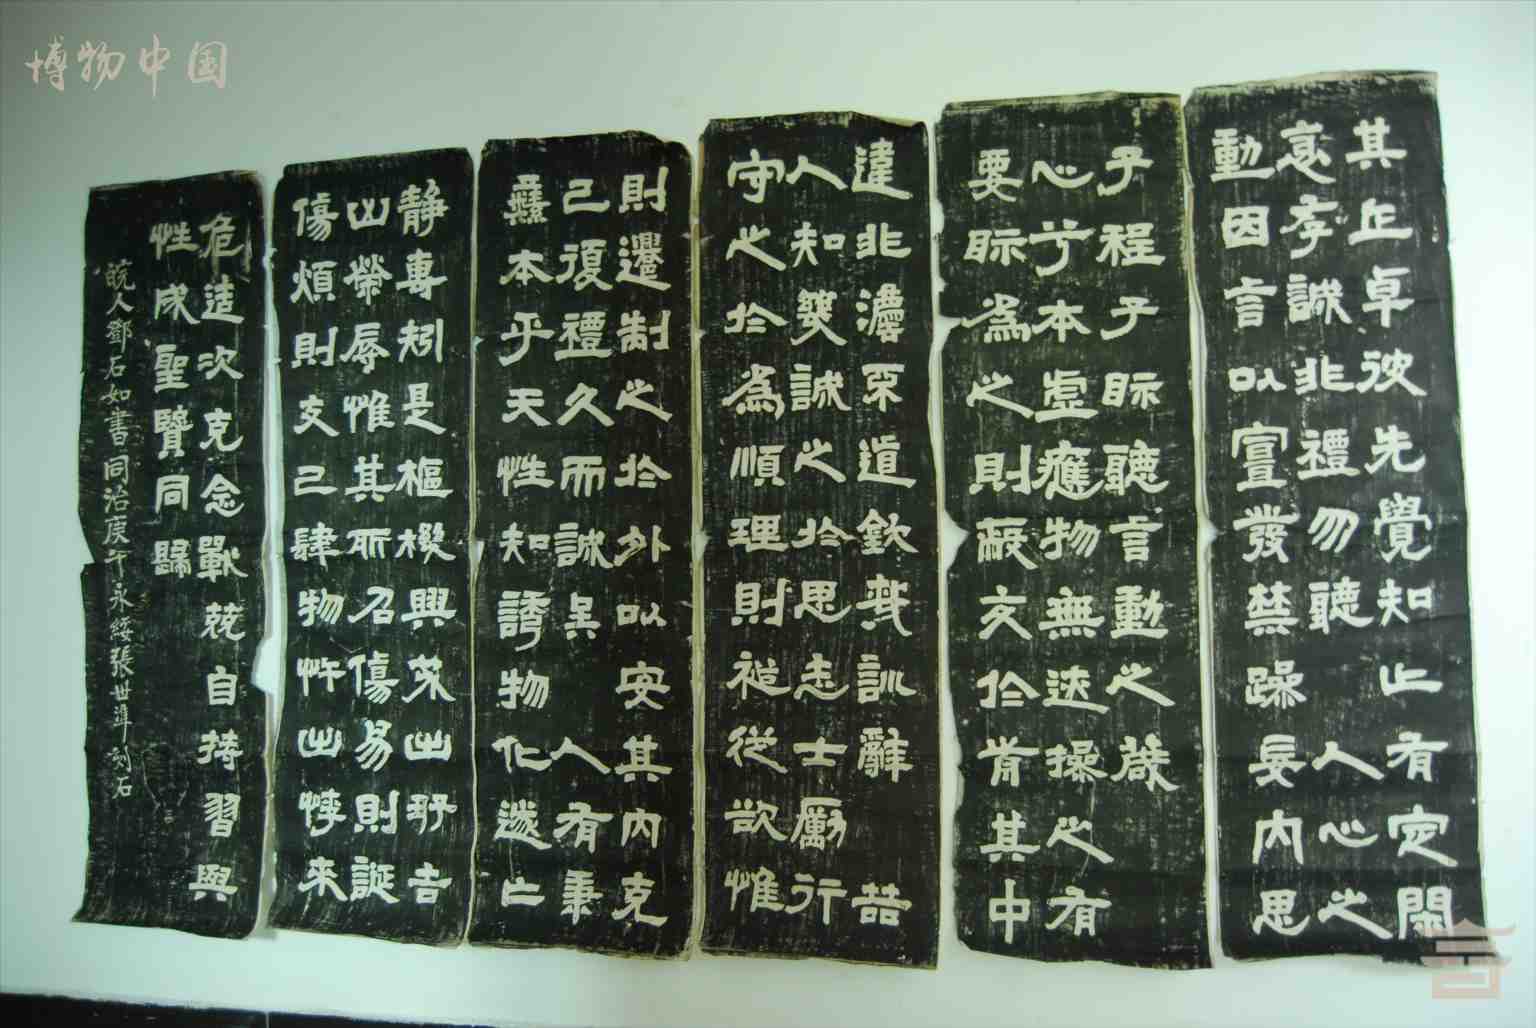 博物中国
其正卓彼先覺知止有定閑
衺存誠非禮勿聽 人心之
動因言以宣發禁躁妄內思
子程子眎聽言動之箴
心兮本虛應物無迹操之有
要眎為之則蔽交於前其中
違非灋不道欽哉訓辭 喆
人知幾誠之於思志士勵行
守之於為順理則裕從欲惟
則遷制之於外以安其內克
己復禮久而誠矣 人有秉
彝本乎天性知誘物化遂亡
靜專矧是樞機興戎出好吉
凶榮辱惟其所召傷易則誕
傷煩則支己肆物忤出悖來
危造次克念戰兢自持習與
性成聖賢同歸
皖人鄧石如書同治庚午永綏張世準刻石